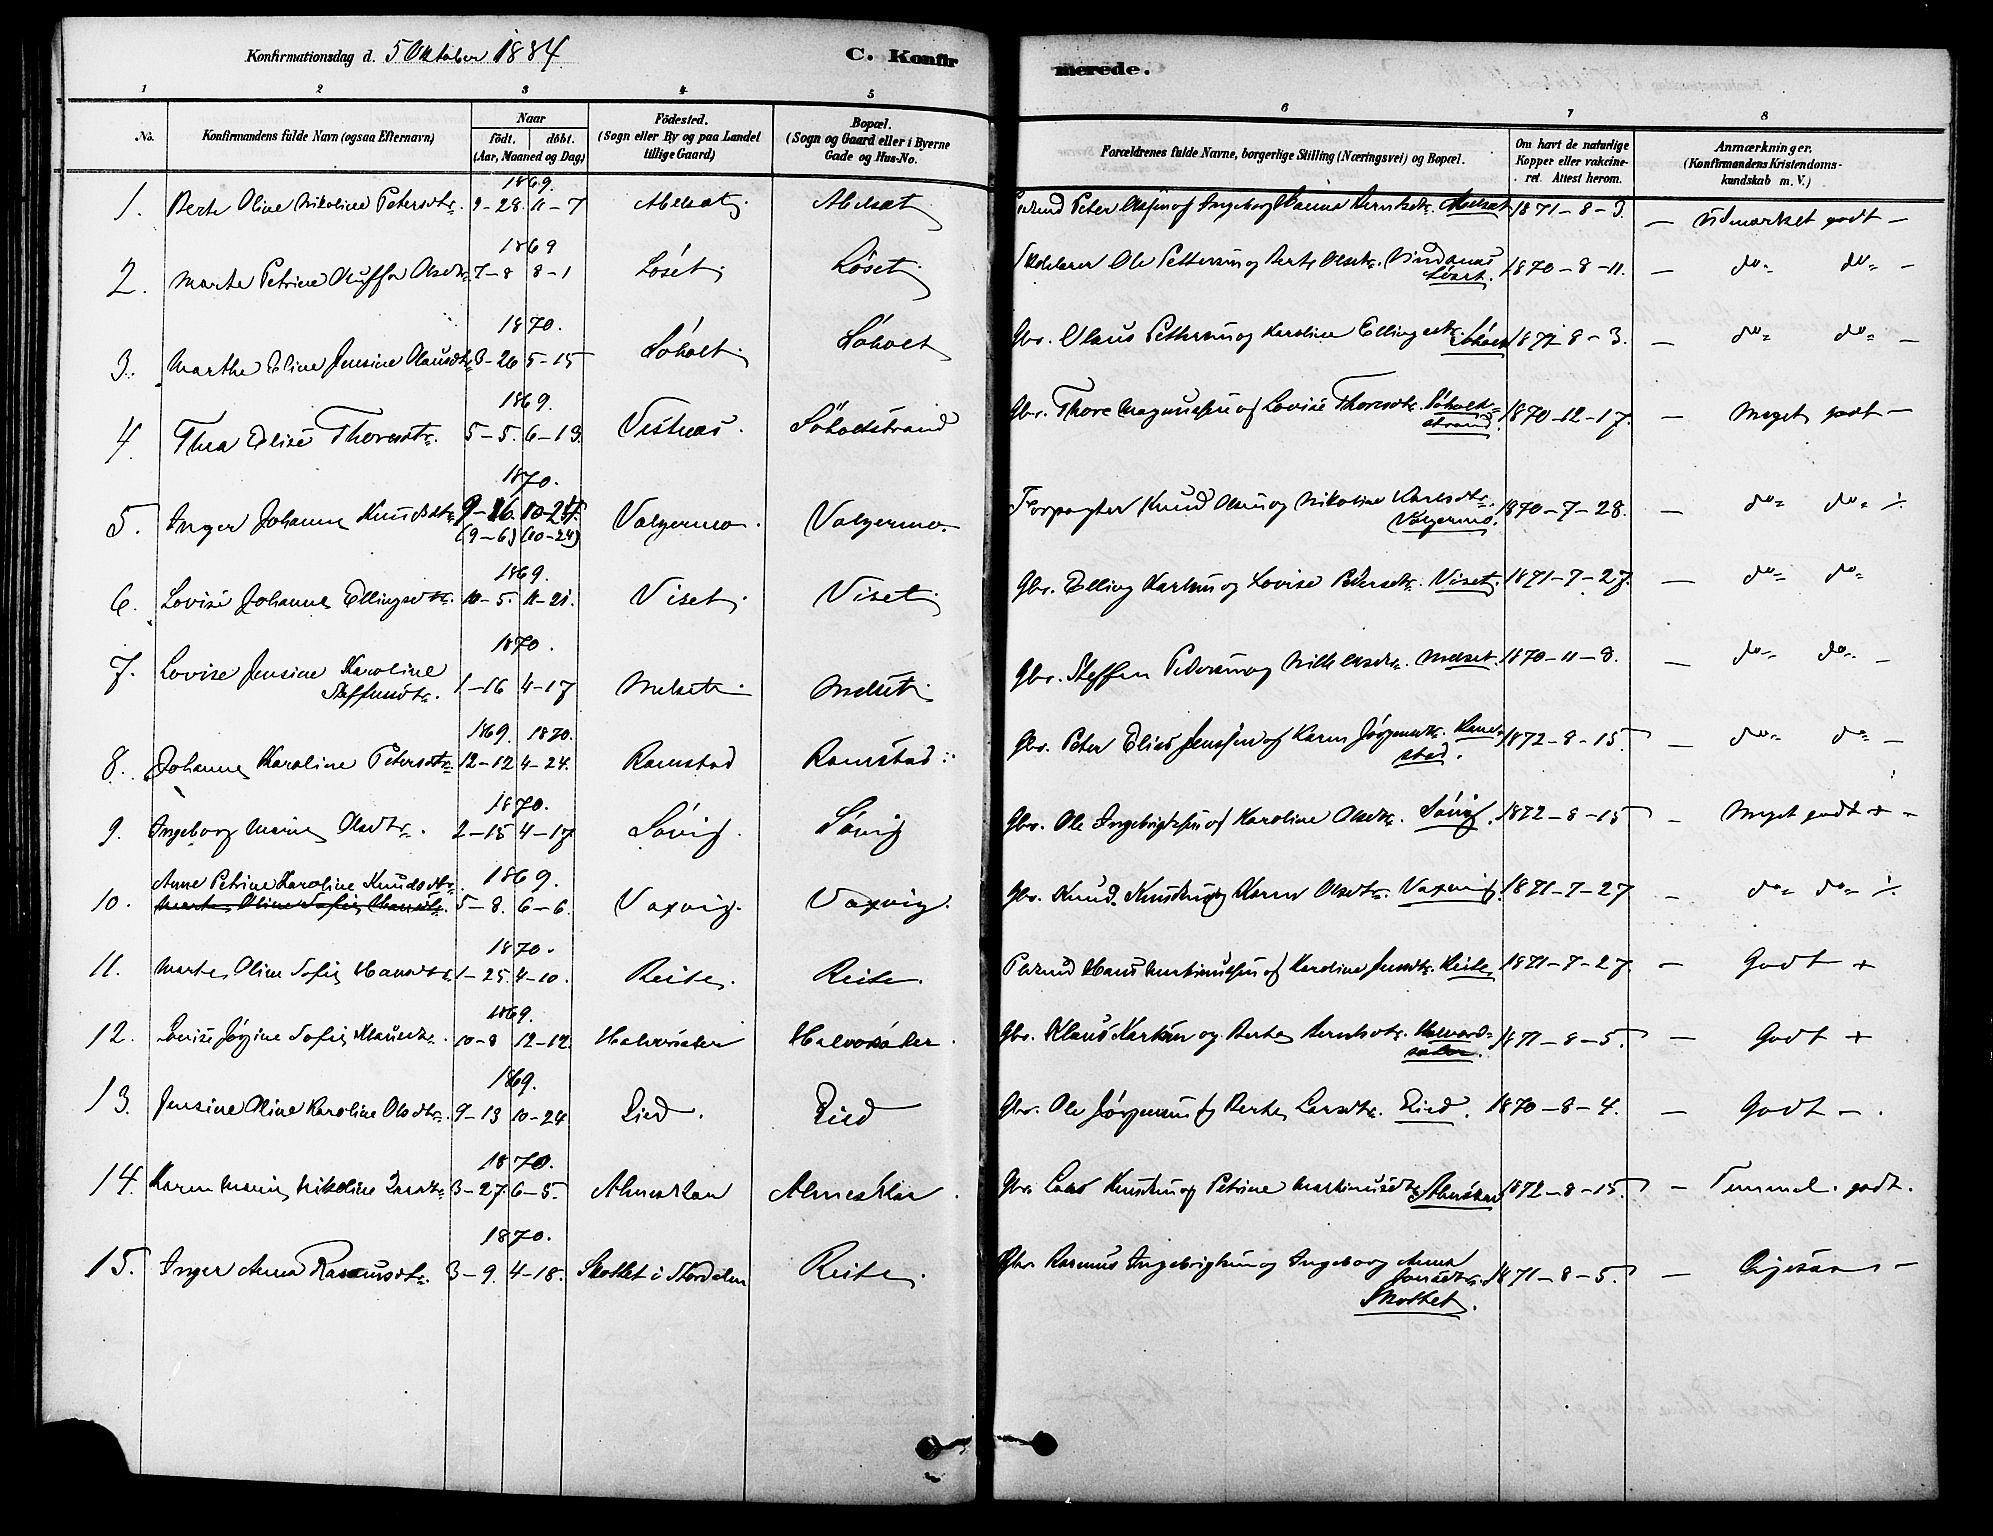 Konfirmationsdag d. 5 Oktober 1884.
C. Konfirmerede.
1 2 3 4 5 6 7 8
No.
Konfirmandens fulde Navn (ogsaa Efternavn)
Naar
födt. döbt.
(Aar, Maaned og Dag)
Födested.
(Sogn eller By og paa Landet
tillige Gaard)
Bopæl.
(Sogn og Gaard eller i Byerne
Gade og Hus-No.
Forældrenes fulde Navne, borgerlige Stilling (Næringsvei) og Bopæl.
Om havt de naturlige
Kopper eller vakcine-
ret. Attest herom.
Anmærkninger.
(Konfirmandens Kristendoms-
kundskab m. V.)
1869.
1. Berte Oline Nikoline Petersdtr. 9-28. 11-7 1871-8-3. — Udmærket godt —
1869
2. Marte Petrine Olsdtr. 7-8 8-1 Löset. Löset. Ole Pettersen og Berte Olsdtr. Löset. 1870-8-11. — do do —
1870.
3. Marthe Eline Jensine Olausdtr. 3-26 5-15 Söholt. Söholt Gbr. Olaus Pettersen og Karoline Ellingsdtr. Söholt 1872 8-3. — do do —
1869.
4. Thea Elise Thoresdtr. 5-5. 6-13. Vestnæs. Söholtstrand Gbr. Thore Magnussen og Lovise Thoresdtr. Söholt-
strand. 1870-12-17. — Meget godt —
1870.
5. Inger Johanne Knudsdtr. 9-16. 10-24. Valgermo. Valgermo. Forpagter Knud Olsen og Nikoline Karlsdtr.
(9-6) (10-24) Valgermo. 1870-7-28. — do do
1869.
6. Lovise Johanne Ellingsdtr. 10-5. 11-21. Viset. Viset. Gbr. Elling Karlsen og Lovise Pedersdtr. Viset. 1871-7-27. — do do
1870.
7. Lovise Jensine Karoline
Steffensdtr. 1-16 4-17 Melset. Melset. Gbr. Steffen Pedersen og Olsdtr. Melset. 1870-11-8. — do do —
1869. 1870.
8. Johanne Karoline Petersdtr. 12-12 4-24. Ramstad Ramstad Gbr. Peter Elias Jensen og Karen Jörgensdtr. Ram-
stad. 1872-8-15. — do do —
1870.
9. Ingeborg Marie Olsdtr. 2-15 4-17 Sövig. Sövig Gbr. Ole Ingebrigtsen og Karoline Olsdtr. Sövig. 1872-8-15 — Meget godt + -
1869.
10. Anne Petrine Karoline Knudsdtr.
Marte Oline Sofie Hansdtr. 5-8. 6-6. Vaxvig. Vaxvig. Gbr. Knud Knudsen og Karen Olsdtr. Vaxvig. 1871-7-27 — do do
1870.
11. Marte Oline Sofie Hansdtr. 1-25. 4-10. Reite. Reite. Hans Martinussen og Karoline Jensdtr. Reite. 1871-7-27. — Godt +
1869.
12. Lovise Jörgine Sofie Klausdtr. 10-8 12-12. Halvorsäter Halvorsäter. Gbr. Klaus Karlsen og Berte Berntsdtr. Halvord-
säter. 1871-8-5. — Godt +
1869.
13. Jensine Oline Karoline Olsdtr. 9-13 10-24 Lied. Lied Gbr. Ole Jörgensen og Berte Larsdtr. Lied. 1870-8-4. — Godt —.
1870.
14. Karen Marie Nikoline Larsdtr. 3-27. 6-5. Almeskar Almeskar. Gbr. Lars Knudsen og Petrine Martinusdtr. Almeskar 1872-8-15. — Temmel. godt.
1870.
15. Inger Anna Rasmusdtr. 3-9. 4-18. Skotlet i Stordalen Reite. Gbr. Rasmus Ingebrigtsen og Ingeborg Anna
Jonsdtr.
Skotlet. 1871-8-5. —